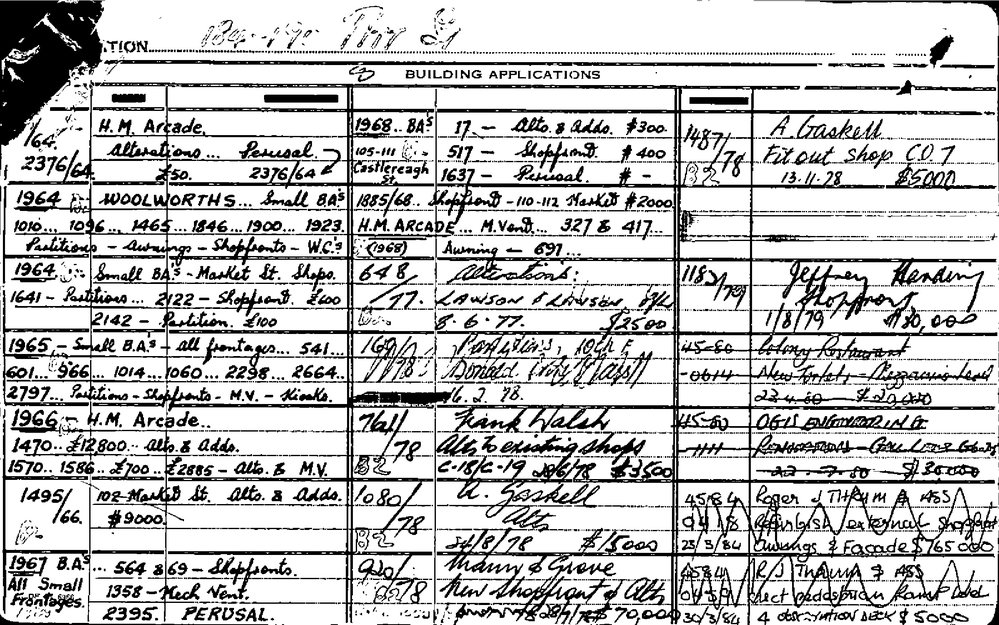 TION
184-190 Pitt St
BUILDING APPLICATIONS
/64.
H.M. Arcade.
2376/64.
Alterations... Perusal.
£50. 2376/64
1964 WOOLWORTHS... Small BAs
1010... 1096... 1465...1846...1900...1923.
Partitions - Awnings - Shopfronts - W.C.s
1964 Small BAs - Market St. Shops.
1641 - Partitions... 2122 - Shopfront. £600
2142 - Partition. £100
1965 - Small B.A.s - all frontages... 541...
601... 966... 1014...1060...2298...2664..
2797. Partitions - Shopfronts - M.V. - Kiosks.
1966 - H.M. Arcade..
1470..£12,800...Alts & Adds.
1570..1586...£700..£2885 - Alts. & M.V.
1495/
/66.
102 Market St. Alts. & Adds.
$9000.
1967 B.A.s ... 564 & 69 - Shopfronts.
All Small
Frontages.
1358 - Mech Vent.
2395. PERUSAL.
1968.. BAs 17 - Alts. & Adds. $300.
105-111
Castlereagh
St.
517 - Shopfront. $400
1637 - Perusal. $ -
1885/68.. Shopfront - 110-112 Market $2000
H.M. ARCADE... M.Vent... 327 & 417...
(1968) Awning - 697...
648/
/77.
Alterations:
LAWSON & LAWSON P/L
8.6.77. $2500
Partitions, 10th F
16.2.78.
761/
/78
B2
Frank Walsh
Alts to existing shops
C-18/C-19 28/6/78 $3,500
1080/
/78
B2
A. Gaskell
Alts
24/8/78 $15000
/78
New Shopfront & Alts
$70,000
1487/
/78
B2
A. Gaskell
Fit out shop C.O.7
13.11.78 $5000
1183/79
Jeffrey Harding
Shopfront
1/8/79 $30,000
45-80
Colony Restaurant
-0614
New Toilets - Mezzanine Level
22.4.80 $20,000
45-80
OGIS ENGINEERING
-1111
22.7.80 $30000
4584
0418
23/3/84
Roger J THRUM & ASS
Refurbish external shopfront
awnings & Facade $765000
4584
0459
30/3/84
R/J Thrum & ASS
4 observation deck $5000